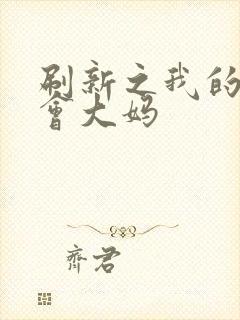 刷新之我的
會大妈
齊君